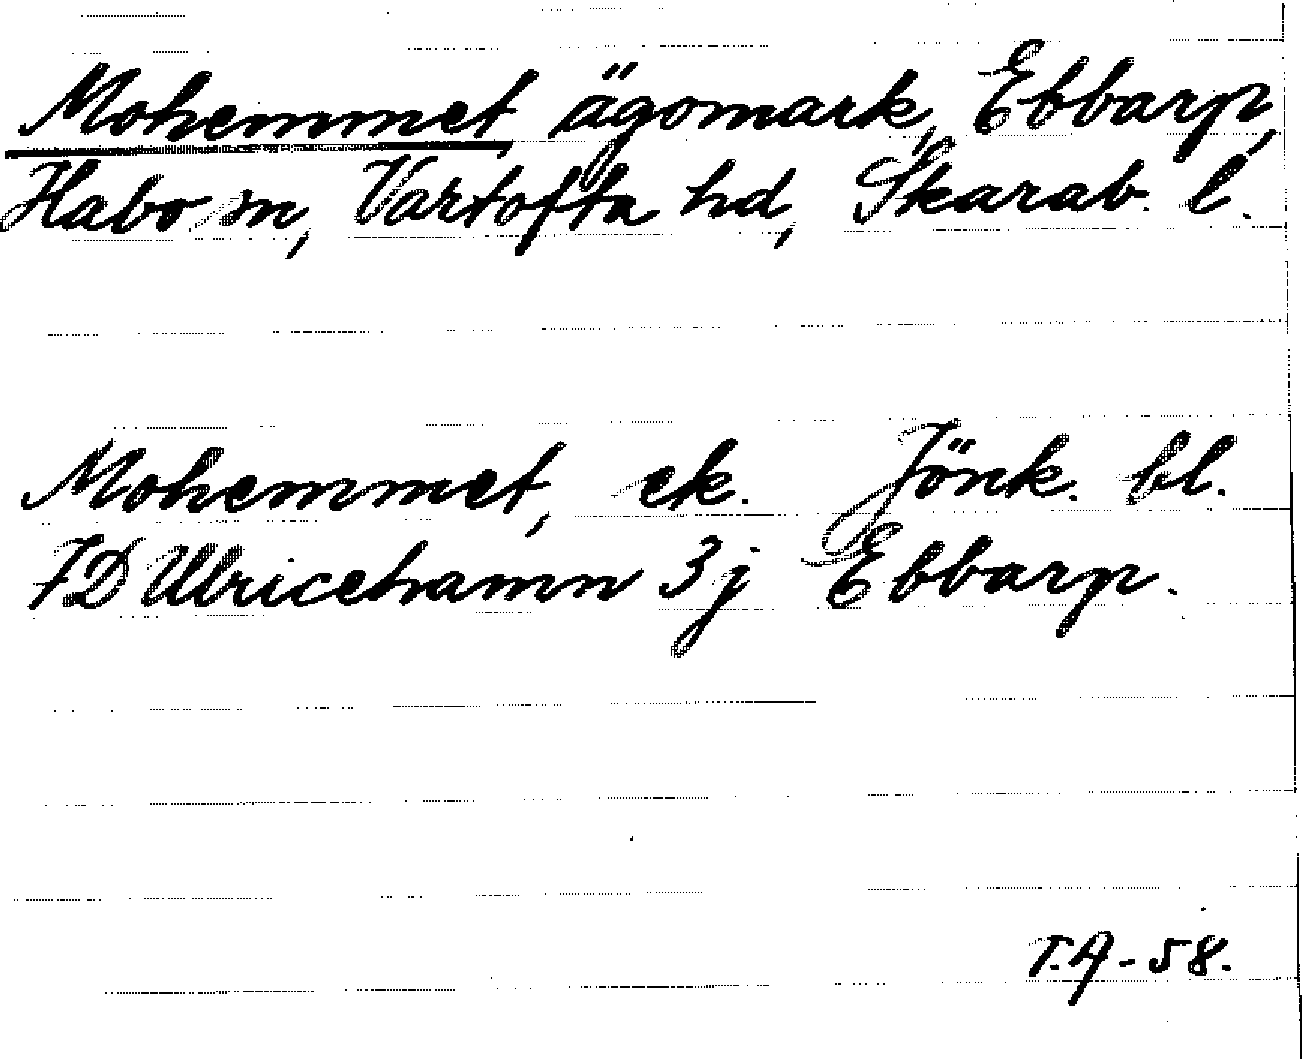 Mohemmet ägomark, Ebbarp,
Habo sn, Vartofta hd, Skarab. l.
Mohemmet, ek. Jönk. bl.
7D Ulricehamn 3j Ebbarp.
T.A - 58.